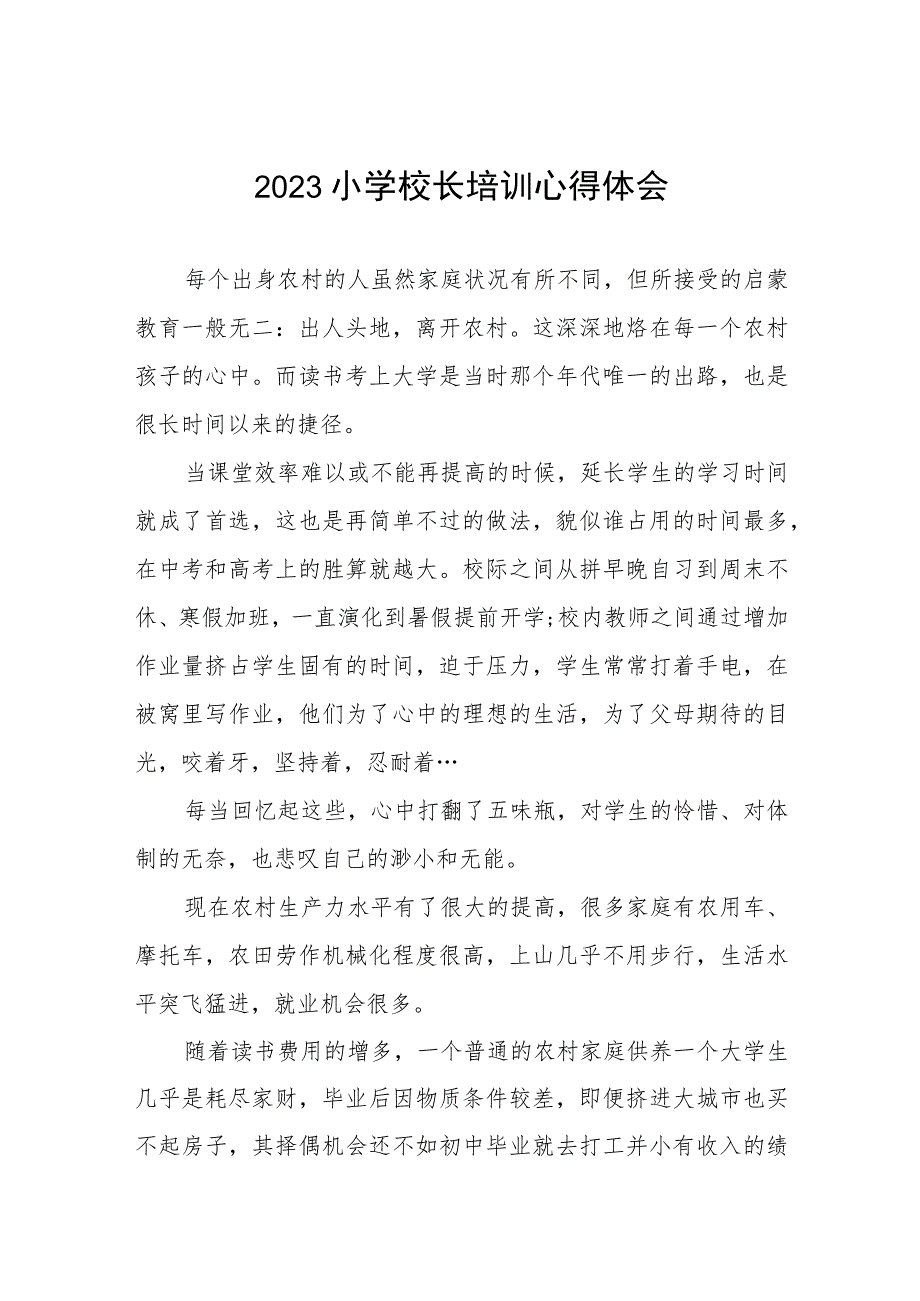 2023小学校长培训心得体会
每个出身农村的人虽然家庭状况有所不同，但所接受的启蒙
教育一般无二：出人头地，离开农村。这深深地烙在每一个农村
孩子的心中。而读书考上大学是当时那个年代唯一的出路，也是
很长时间以来的捷径。
当课堂效率难以或不能再提高的时候，延长学生的学习时间
就成了首选，这也是再简单不过的做法，貌似谁占用的时间最多，
在中考和高考上的胜算就越大。校际之间从拼早晚自习到周末不
休、寒假加班，一直演化到暑假提前开学;校内教师之间通过增加
作业量挤占学生固有的时间，迫于压力，学生常常打着手电，在
被窝里写作业，他们为了心中的理想的生活，为了父母期待的目
光，咬着牙，坚持着，忍耐着…
每当回忆起这些，心中打翻了五味瓶，对学生的怜惜、对体
制的无奈，也悲叹自己的渺小和无能。
现在农村生产力水平有了很大的提高，很多家庭有农用车、
摩托车，农田劳作机械化程度很高，上山几乎不用步行，生活水
平突飞猛进，就业机会很多。
随着读书费用的增多，一个普通的农村家庭供养一个大学生
几乎是耗尽家财，毕业后因物质条件较差，即便挤进大城市也买
不起房子，其择偶机会还不如初中毕业就去打工并小有收入的绩